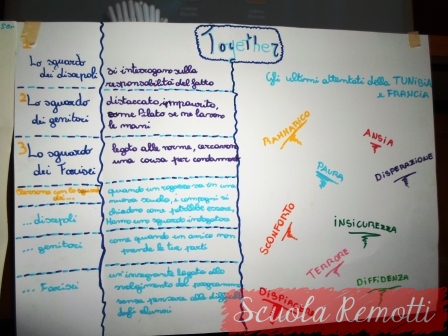 Together
1
Lo sguardo
dei discepoli
si interrogano sulla
responsabilità del fatto
2 Lo sguardo
dei genitori
distaccato, impaurito,
come Pilato se ne lavano
le mani
3 Lo sguardo
dei Farisei
legato alle norme, cercavano
una causa per condannare
quando un ragazzo va in una
nuova scuola, i compagni si
chiedono come potrebbe essere,
Hanno uno sguardo indagatore
... discepoli
... genitori
come quando un amico non
prende le tue parti
... Farisei
un'insegnante legato allo
svolgimento del programma
senza pensare alle difficoltà
degli alunni
Gli ultimi attentati della TUNISIA
e FRANCIA
RAMMARICO
ANSIA
PAURA
DISPERAZIONE
SCONFORTO
INSICUREZZA
TERRORE
DIFFIDENZA
Scuola Remotti